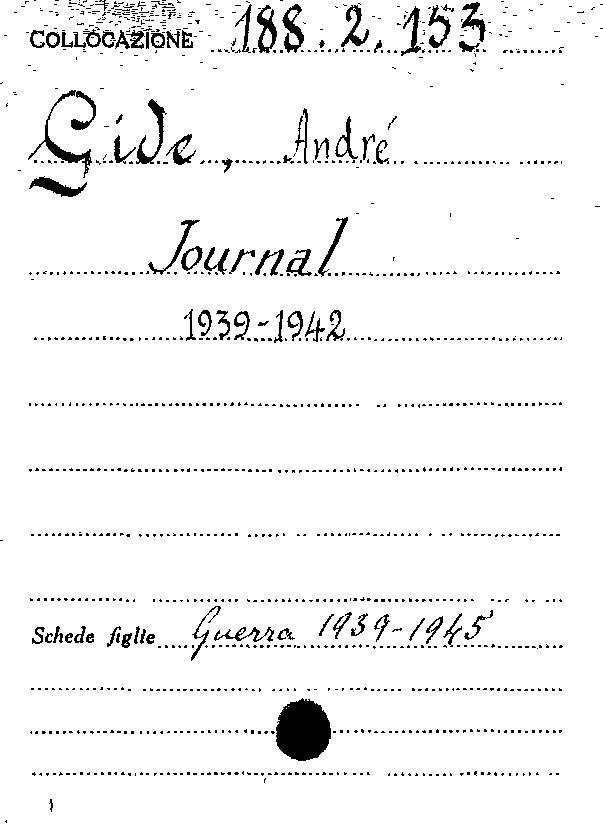 COLLOCAZIONE 188.2.153
Gide, André
Journal
1939-1942
Schede figlie Guerra 1939-1945